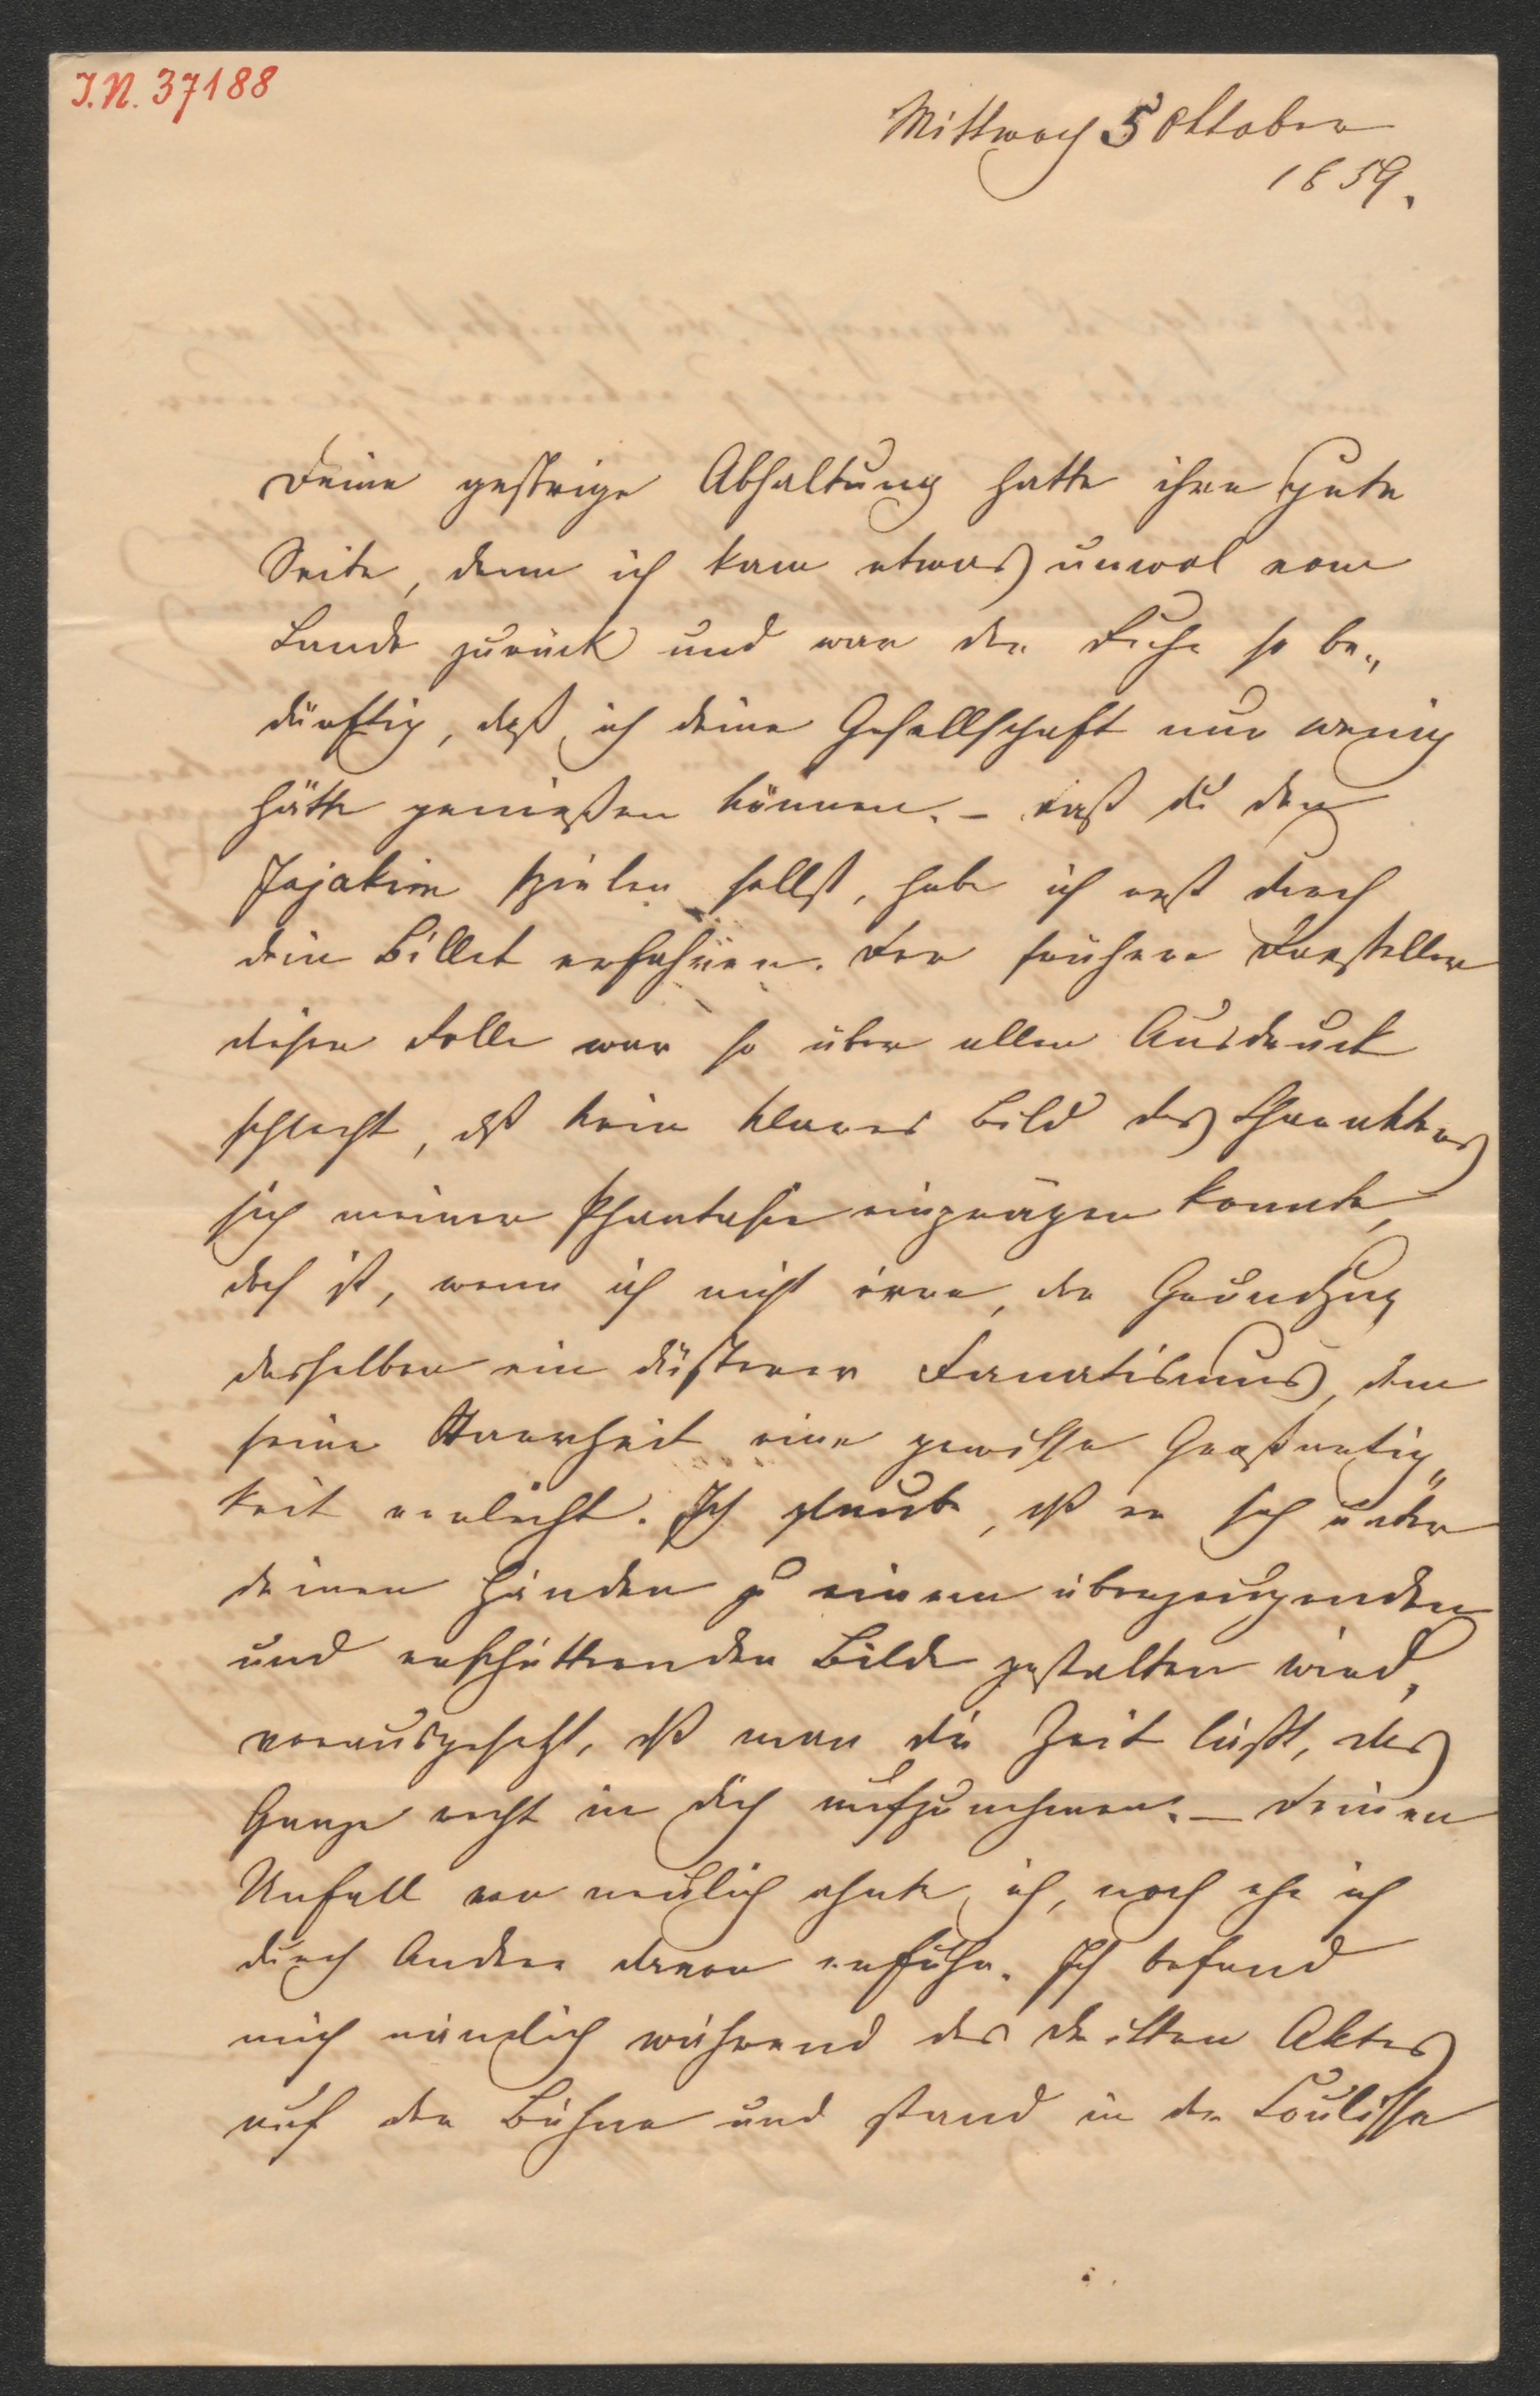 J.N. 37188
Mittwoch 5 Oktober
1859.
Deine gestrige Abhaltung hatte ihre gute
Seite, denn ich kam etwas unwol vom
Lande zurück und war der Ruhe so be„
dürftig, daß ich deine Gesellschaft nur wenig
hätte genießen können. – Daß du den
Jojakim spielen sollst, habe ich erst durch
dein Billet erfahren. Der frühere Darsteller
dieser Rolle war so über allen Ausdruck
schlecht, dß kein klares Bild des Charakters
sich meiner Phantasie einprägen konnte,
doch ist, wenn ich nicht irre, der Grundzug
desselben ein düsterer Fanatismus, dem
seine Starrheit eine gewisse Großartig„
keit verleiht. Ich glaube, dß er sich unter
deinen Händen zu einem überzeugenden
und erschütternden Bilde gestalten wird,
vorausgesetzt, dß man dir Zeit läßt, das
Ganze recht in dich aufzunehmen. – Deinen
Unfall von neulich ahnte ich, noch ehe ich
durch Andere davon erfuhr. Ich befand
mich nämlich während des dritten Aktes
auf der Bühne und stand in der Coulisse